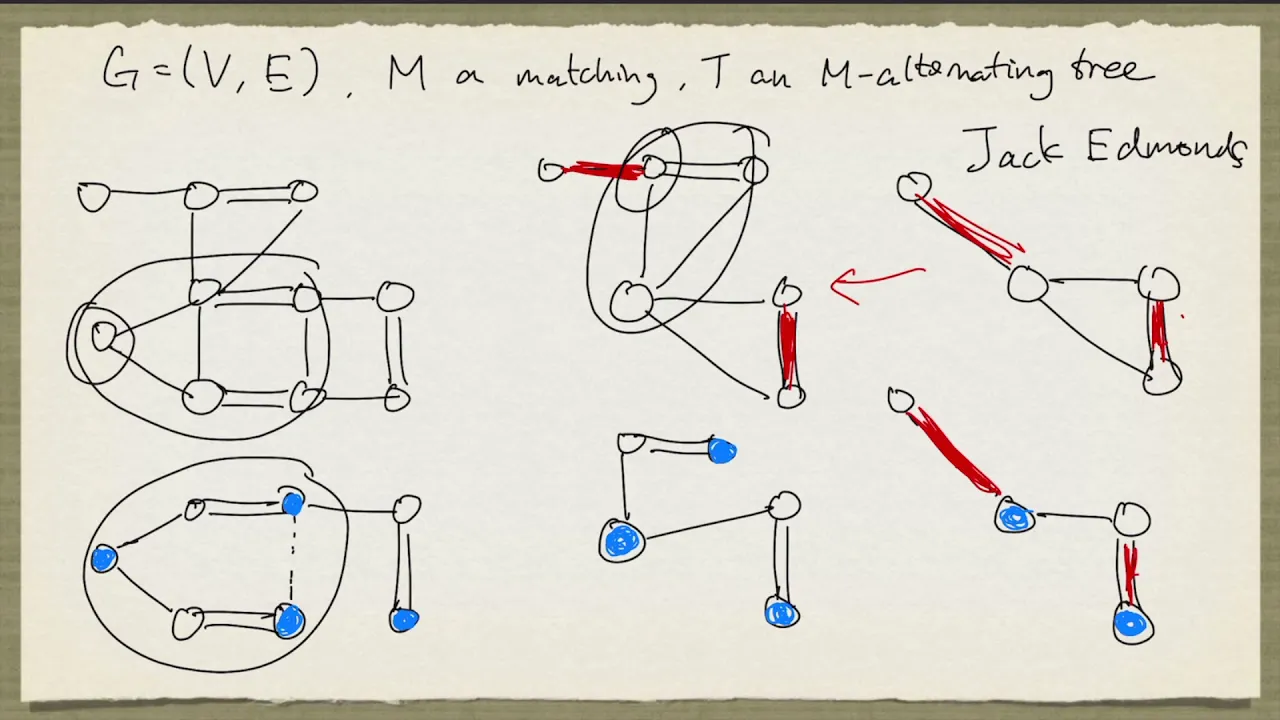 G=(V, E), M a matching, T an M-alternating tree
Jack Edmonds